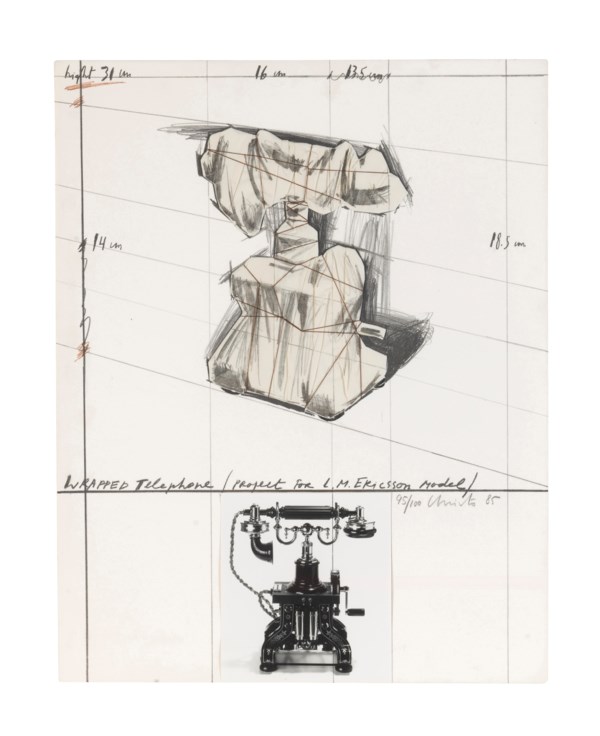 hight 31 cm
16 cm
13.5 cm
14 cm
18.5 cm
WRAPPED Telephone / PROJECT FOR L.M. ERICSSON Model /
95/100 Christo 85